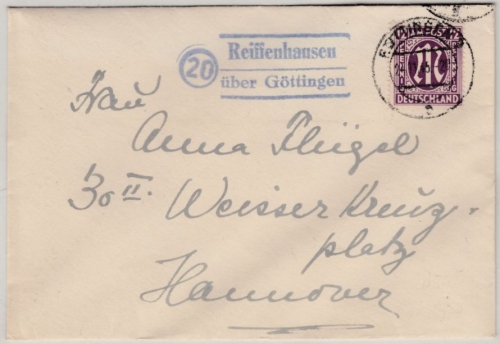 20
Reiffenhausen
über Göttingen
DEUTSCHLAND
Frau
Anna Fliegel
30 II. Weisser Kreuz-
platz
Hannover